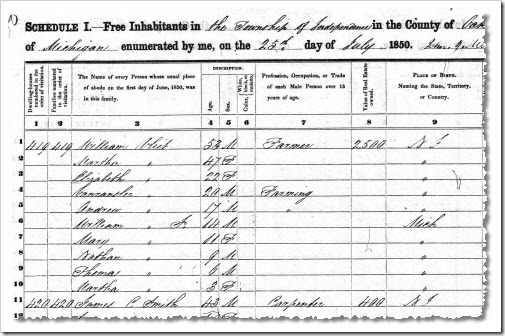 SCHEDULE I.—Free Inhabitants in the Township of Independence in the County of
of Michigan enumerated by me, on the 25th day of July 1850.
Dwelling-houses numbered in the order of visitation.
Families numbered in the order of visitation.
The Name of every Person whose usual place of abode on the first day of June, 1850, was in this family.
DESCRIPTION.
Age.
Sex.
Color.
Profession, Occupation, or Trade of each Male Person over 15 years of age.
Value of Real Estate owned.
PLACE OF BIRTH. Naming the State, Territory, or Country.
1 2 3 4 5 6 7 8 9
1 419 419 William Vliet 53 M Farmer 2500 N J
2 Martha " 47 F "
3 Elizabeth " 22 F "
4 " 20 M Farming "
5 Andrew " 17 M " "
6 William " Jr. 14 M Mich
7 Mary " 11 F "
8 Nathan " 9 M "
9 Thomas " 6 M "
10 Martha " 3 F "
11 420 420 James C Smith 42 M Carpenter 400 N J